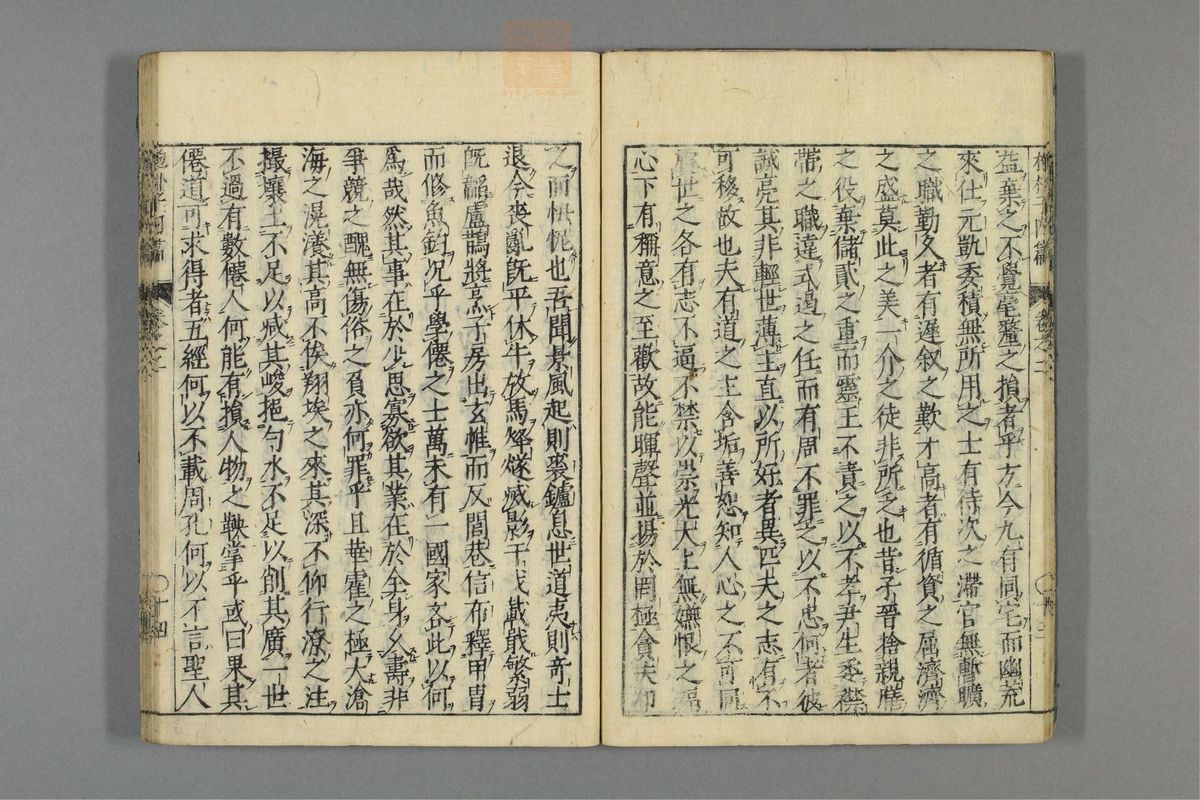 益棄之不覺毫釐之損者乎方今九有同宅而幽荒
來仕元凱委積無所用之士有待次之滯官無暫曠
之職勤久者有遲叙之歎才高者有循資之屈濟濟
之盛莫此之美一介之徒非所乏也昔子晉捨視膳
之役棄儲貳之重而靈王不責之以不孝尹生委襟
帶之職違式遏之任而有周不罪之以不忠何者彼
誠亮其非輕世薄主直以所好者異匹夫之志有不
可移故也夫有道之主含垢善恕知人心之不可同
出處之各有志不逼不禁以崇光大上無嫌恨之
心下有稱意之至歡故能暉聲並揚於罔極貪夫
之而忸怩也吾聞景風起則裘鑪息世道夷則奇士
退今喪亂既平休牛放馬烽燧滅影干戈載戢繁弱
既韜盧鵲將烹子房出玄帷而反閭巷信布釋甲冑
而修魚釣况乎學僊之士萬未有一國家吝此以何
爲哉然其事在於少思寡欲其業在於全身久壽非
爭競之醜無傷俗之負亦何罪乎且華霍之極大滄
海之滉瀁其高不俟翔埃之來其深不仰行潦之注
撮壤土不足以減其峻挹勺水不足以創其廣一世
不過有數僊人何能有損人物之鞅掌乎或曰果其
僊道可求得者五經何以不載周孔何以不言聖人
十四